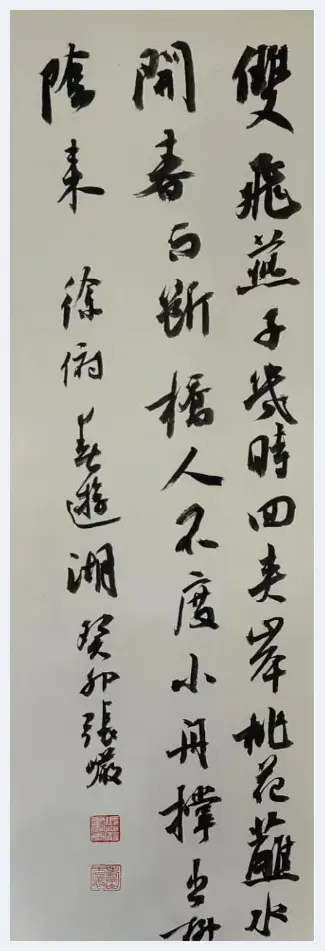 雙飛燕子幾時回夾岸桃花蘸水
開春雨斷橋人不度小舟撑出柳
陰来 徐俯春遊湖 癸卯張巗